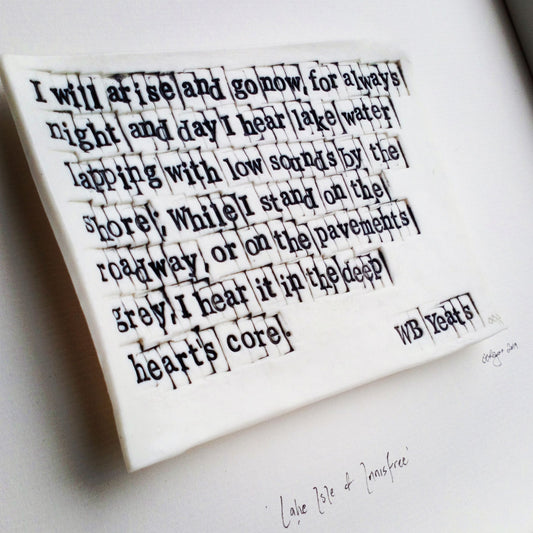 I will arise and go now, for always
night and day I hear lake water
lapping with low sounds by the
shore; While I stand on the
roadway, or on the pavements
grey, I hear it in the deep
heart's core.
WB Yeats
'Lake Isle of Innisfree'